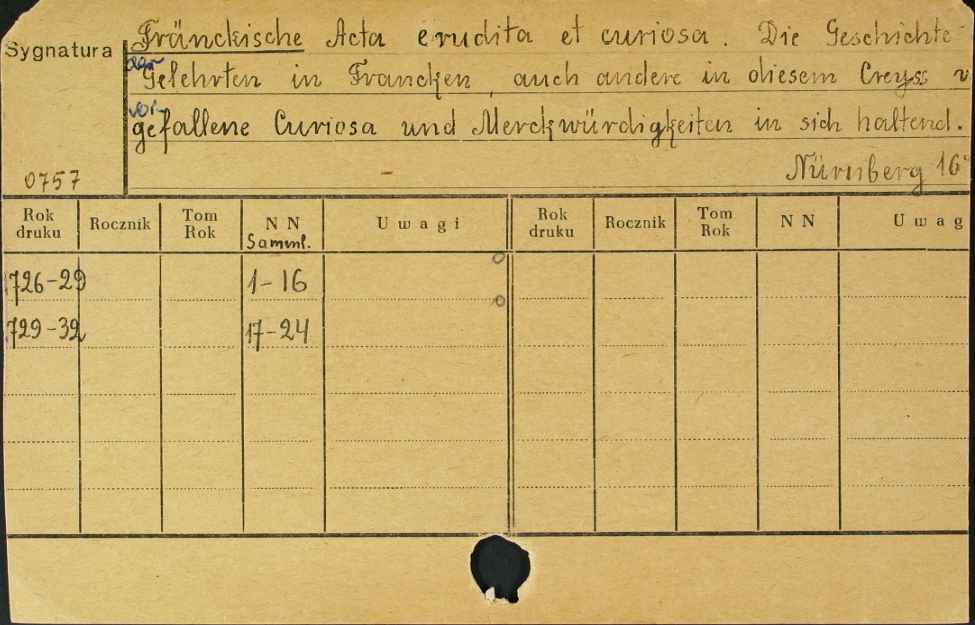 Fränckische Acta erudita et curiosa. Die Geschichte
Sygnatura
der Gelehrten in Francken, auch andere in diesem Creyss v
vor-
gefallene Curiosa und Merckwürdigkeiten in sich haltend.
0757
Nürnberg 16
Rok druku Rocznik Tom Rok N N Samml. Uwagi Rok druku Rocznik Tom Rok N N Uwag
726-29 1-16
729-32 17-24